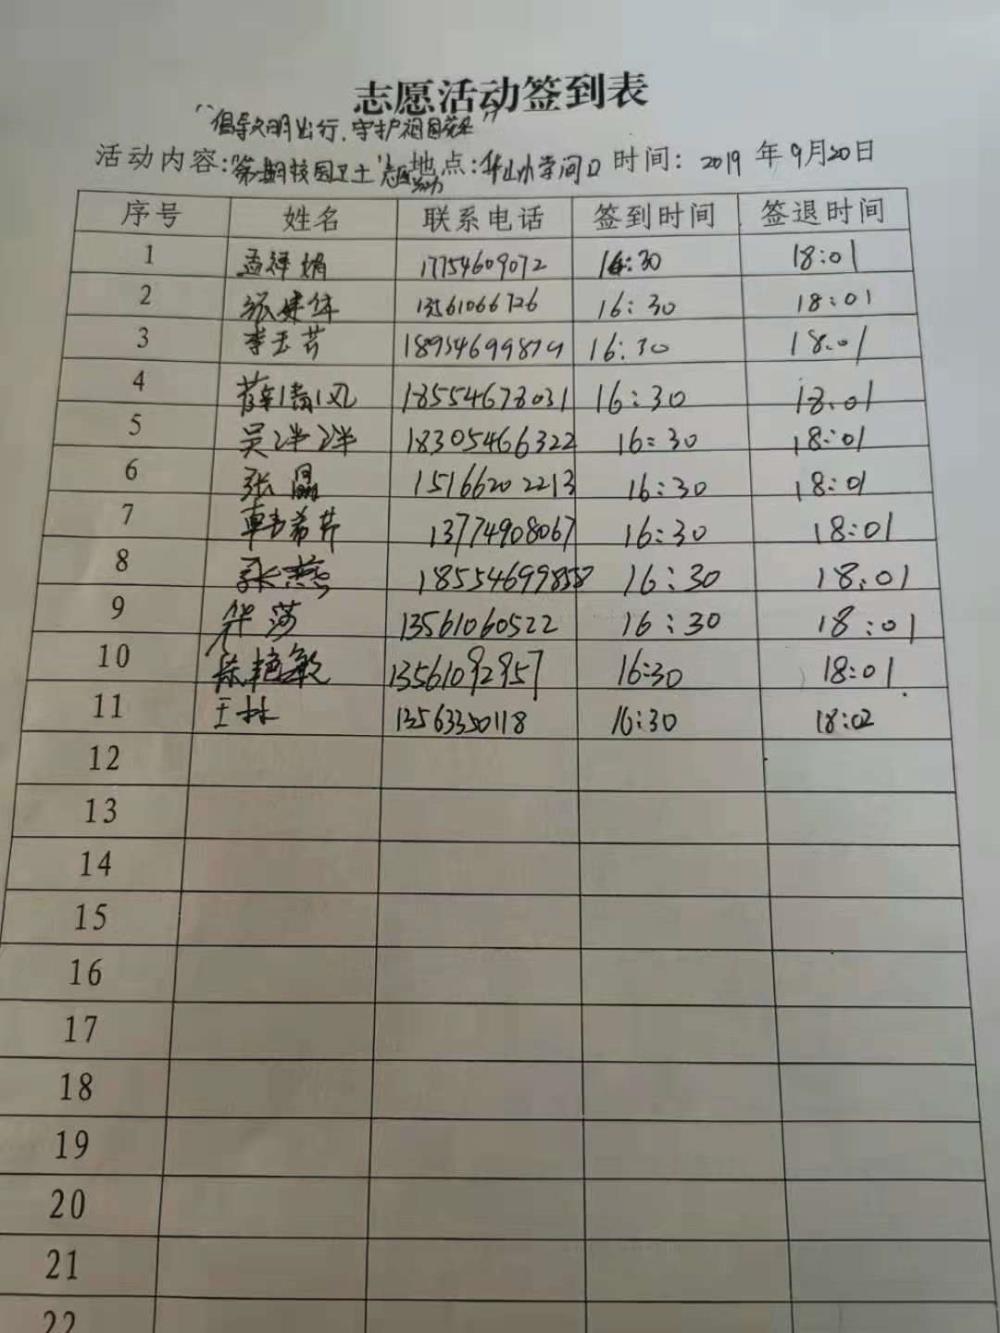 志愿活动签到表
"倡导文明出行、守护祖国花朵"
活动内容:第一期校园卫士"志愿活动 地点:华山小学门口 时间: 2019 年 9月20日
序号 姓名 联系电话 签到时间 签退时间
1 孟祥娟 17754609072 16:30 18:01
2 张建华 13561066726 16:30 18:01
3 李玉芹 16:30 18:01
4 薛清风 18554678031 16:30 18:01
5 吴洋洋 18305466322 16:30 18:01
6 张晶 15166202213 16:30 18:01
7 韩希芹 13774908067 16:30 18:01
8 张燕 18554699858 16:30 18:01
9 华莎 13561060522 16:30 18:01
10 陈艳敏 13561092957 16:30 18:01
11 王林 13563350118 16:30 18:02
12
13
14
15
16
17
18
19
20
21
22